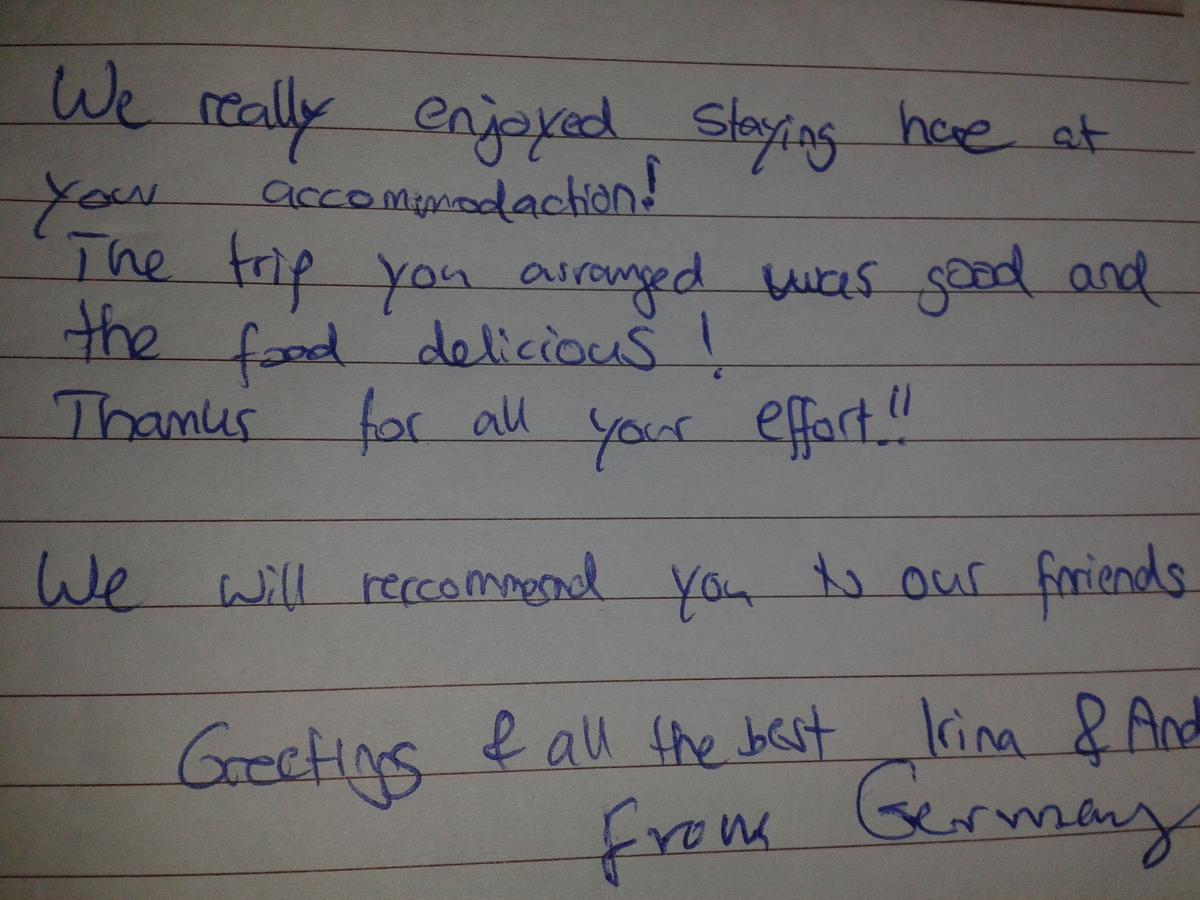 We really enjoyed staying here at
your accommodaction!
The trip you arranged was good and
the food delicious!
Thanks for all your effort!!
We will reccommend you to our friends
Greetings & all the best Irina & And
from Germany